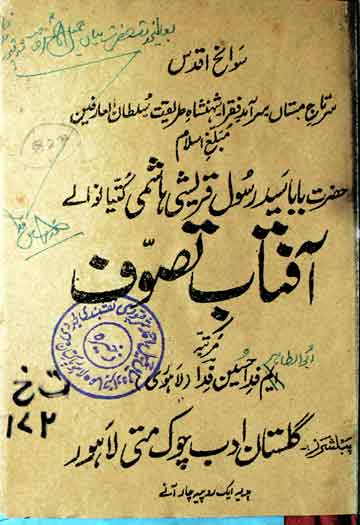 سوانح اقدس
سرتاج مستاں سرآمد فقراء شہنشاہ طریقت سلطان العارفین
مبلغ اسلام
حضرت بابا سید رسول قریشی ہاشمی کٹیانوالے
آفتاب تصوّف
مرتبہ
ابوالطاہر
ایم فدا حسین فدا (لاہوری)
ت خ
۱۷۲
پبلشرز:- گلستان ادب چوک متی لاہور
ہدیہ ایک روپیہ چار آنے